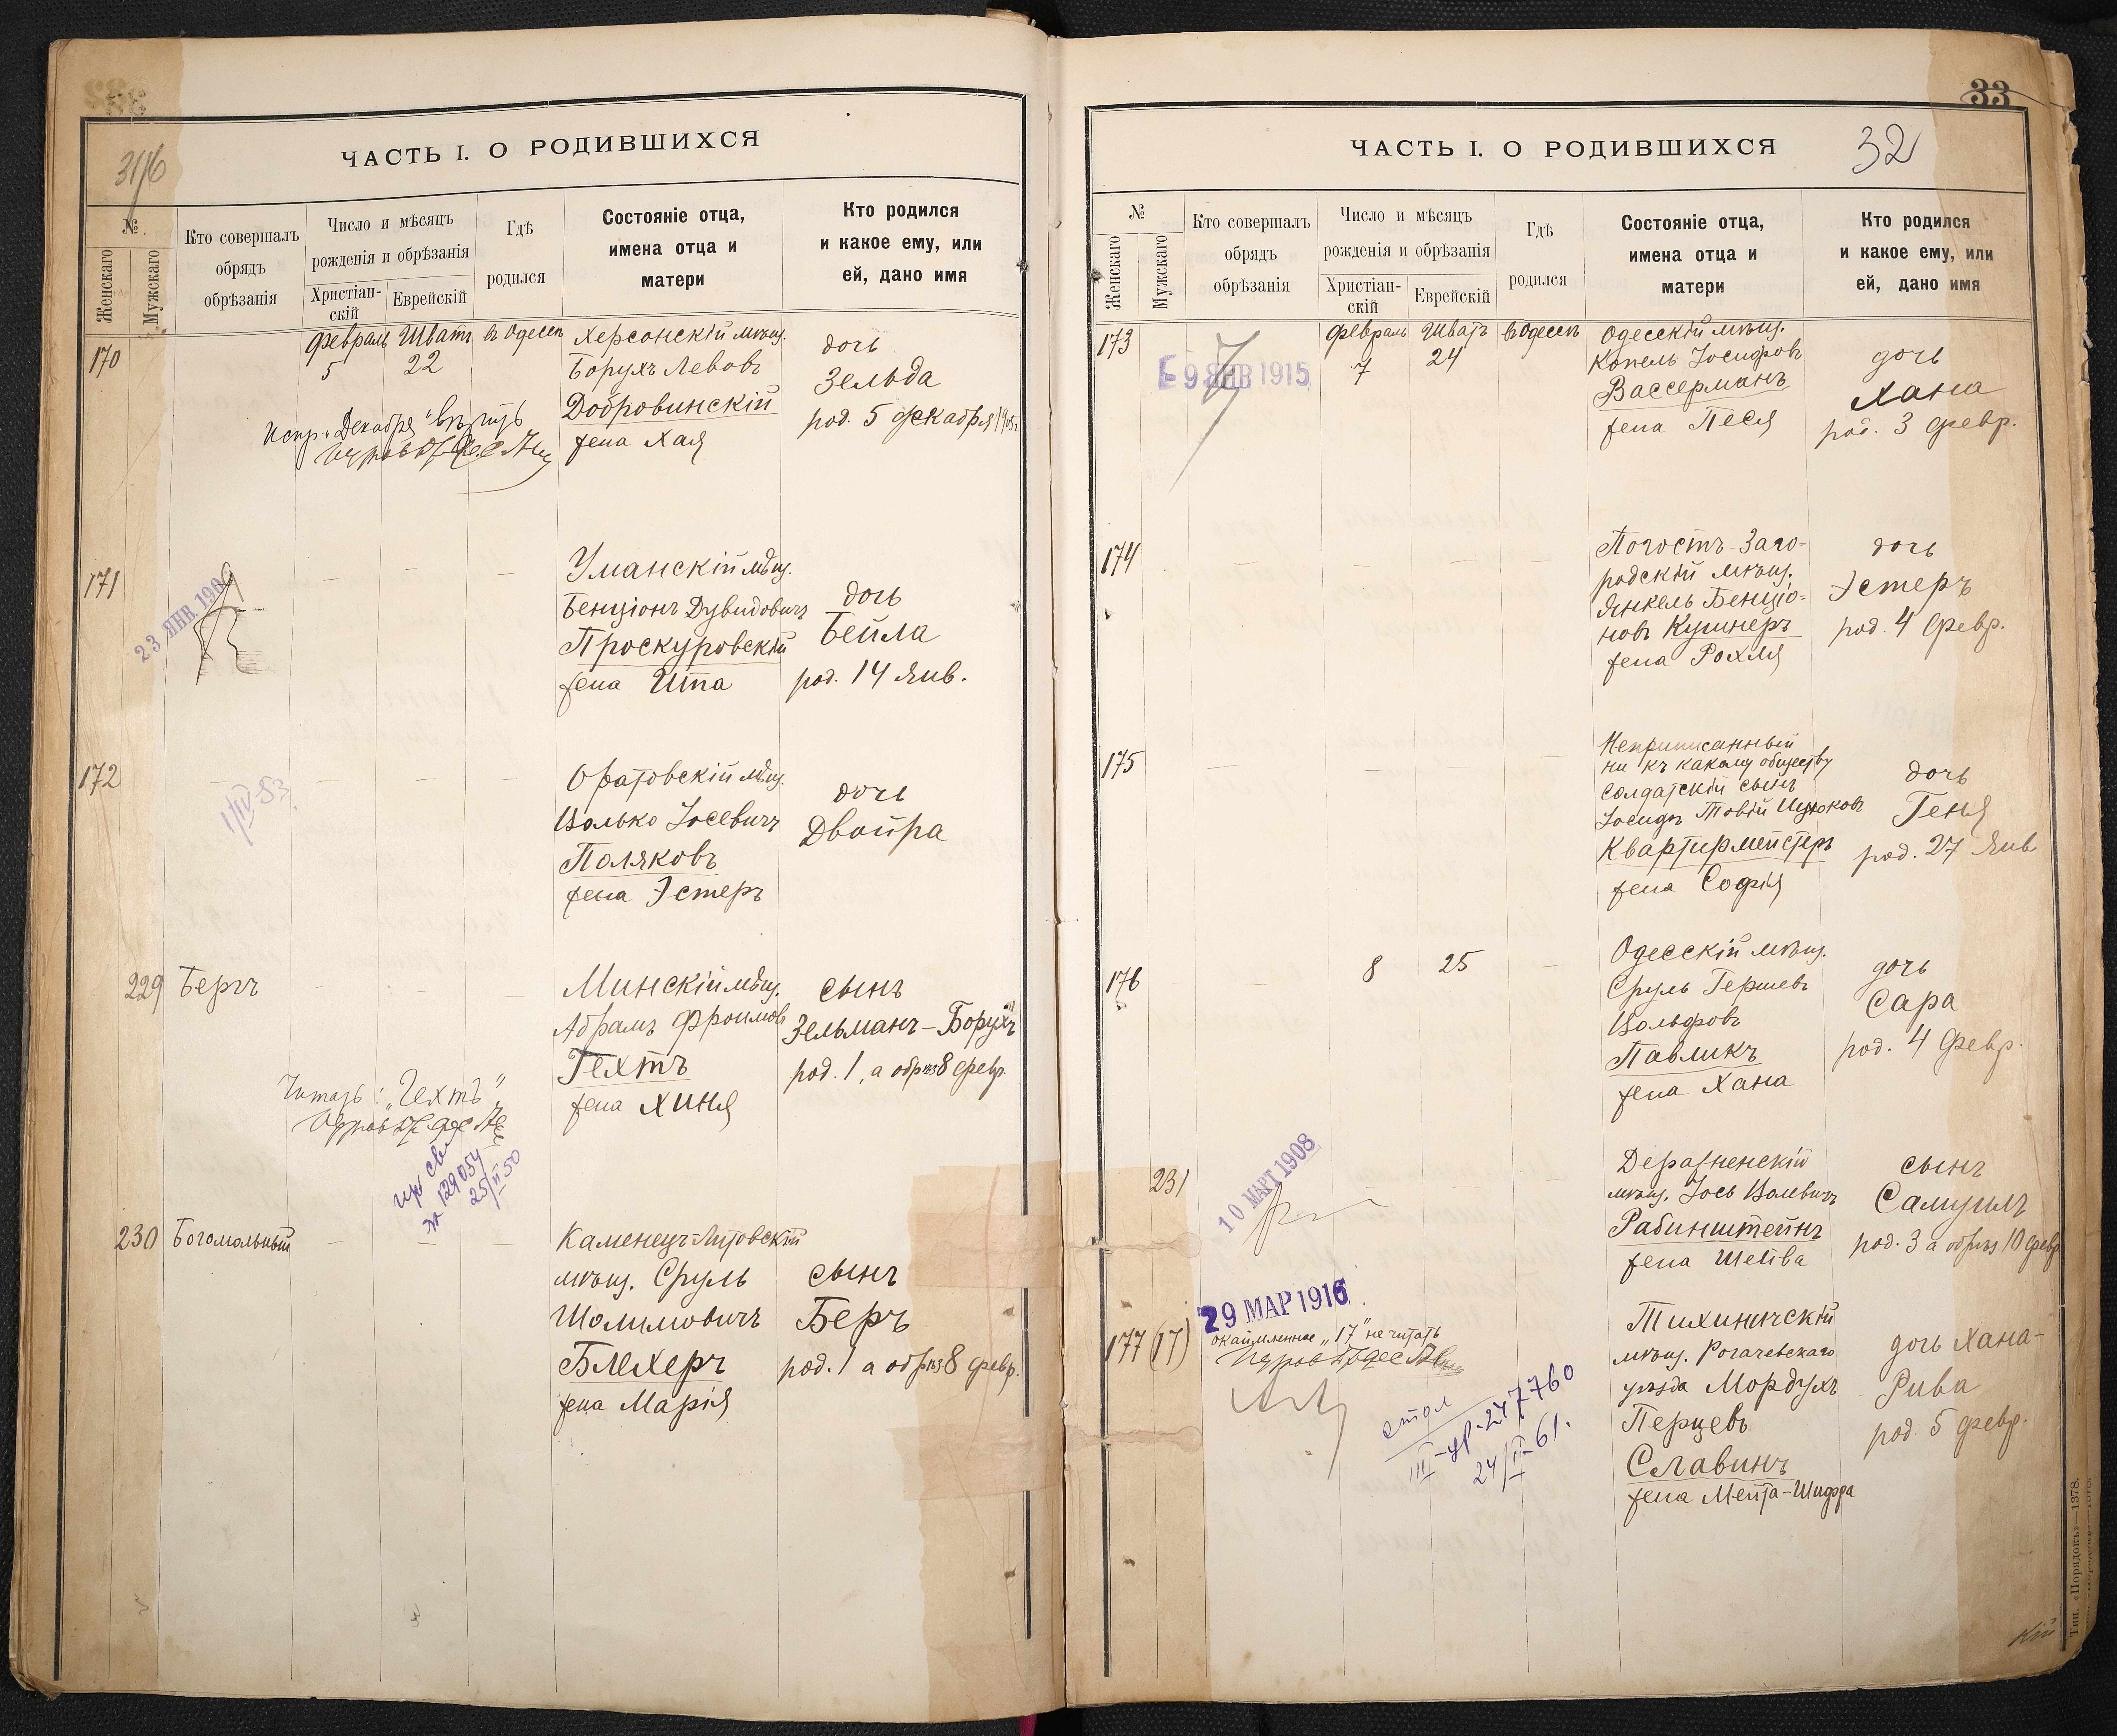 ЧАСТЬ I. О РОДИВШИХСЯ
№
Женскаго
Мужскаго
Кто совершалъ
обрядъ
обрѣзанія
Число и мѣсяцъ
рожденія и обрѣзанія
Христіан-
скій
Еврейскій
Гдѣ
родился
Состояніе отца,
имена отца и
матери
Кто родился
и какое ему, или
ей, дано имя
170
Февраль
5
Шватъ
22
въ Одессѣ
Херсонскій мѣщ.
Борухъ Левовъ
Добровинскій
жена Хая
дочь
Зельда
род. 5 декабря 1905 г.
Испр. „Декабря"
171
23 ЯНВ. 190
Уманскій мѣщ.
Бенціонъ Дувидовичъ
Проскуровскій
жена Ита
дочь
Бейла
род. 14 Янв.
172
1/IV-53
Оратовскій мѣщ.
Волько Іосевичъ
Поляковъ
жена Эстеръ
дочь
Двойра
229
Бергъ
Минскій мѣщ.
Абрамъ Фроимовъ
Гехтъ
жена Хиня
сынъ
Зельманъ-Борухъ
род. 1, а обрѣз 8 февр.
Читать: „Гехтъ"
129054
25/II 50
230
Богомольный
Каменецъ-Литовскій
мѣщ. Сруль
Шолимовичъ
Блехеръ
жена Марія
сынъ
Беръ
род. 1 а обрѣз 8 февр.
33
32
ЧАСТЬ I. О РОДИВШИХСЯ
№
Женскаго
Мужскаго
Кто совершалъ
обрядъ
обрѣзанія
Число и мѣсяцъ
рожденія и обрѣзанія
Христіан-
скій
Еврейскій
Гдѣ
родился
Состояніе отца,
имена отца и
матери
Кто родился
и какое ему, или
ей, дано имя
173
9 ЯНВ 1915
Февраль
7
Шватъ
24
въ Одессѣ
Одесскій мѣщ.
Копель Іосифовъ
Вассерманъ
жена Песя
дочь
Хана
род. 3 февр.
174
Погостъ-Заго-
родскій мѣщ.
Янкель Бенціо-
новъ Кушнеръ
жена Рохля
дочь
Эстеръ
род. 4 февр.
175
Неприписанный
ни къ какому обществу
солдатскій сынъ
Іосифъ Товій
Квартирмейстеръ
жена Софія
дочь
Геня
род. 27 Янв
176
8
25
Одесскій мѣщ.
Сруль Гершевъ
Вольфовъ
Павликъ
жена Хана
дочь
Сара
род. 4 Февр.
231
10 МАРТ 1908
Деражненскій
мѣщ. Іось Волевичъ
Рабинштейнъ
жена Шейва
сынъ
Самуилъ
род. 3 а обрѣз 10 февр.
177 (17)
29 МАР 1916
окаймленное „17" не читать
стол
III-ур-247760
24/II-61.
Тихиничскій
мѣщ. Рогачевскаго
уѣзда Мордухъ
Перцевъ
Славинъ
жена Мейта-Шифра
дочь Хана-
Рива
род. 5 февр.
Тип. «Порядокъ»—1378.